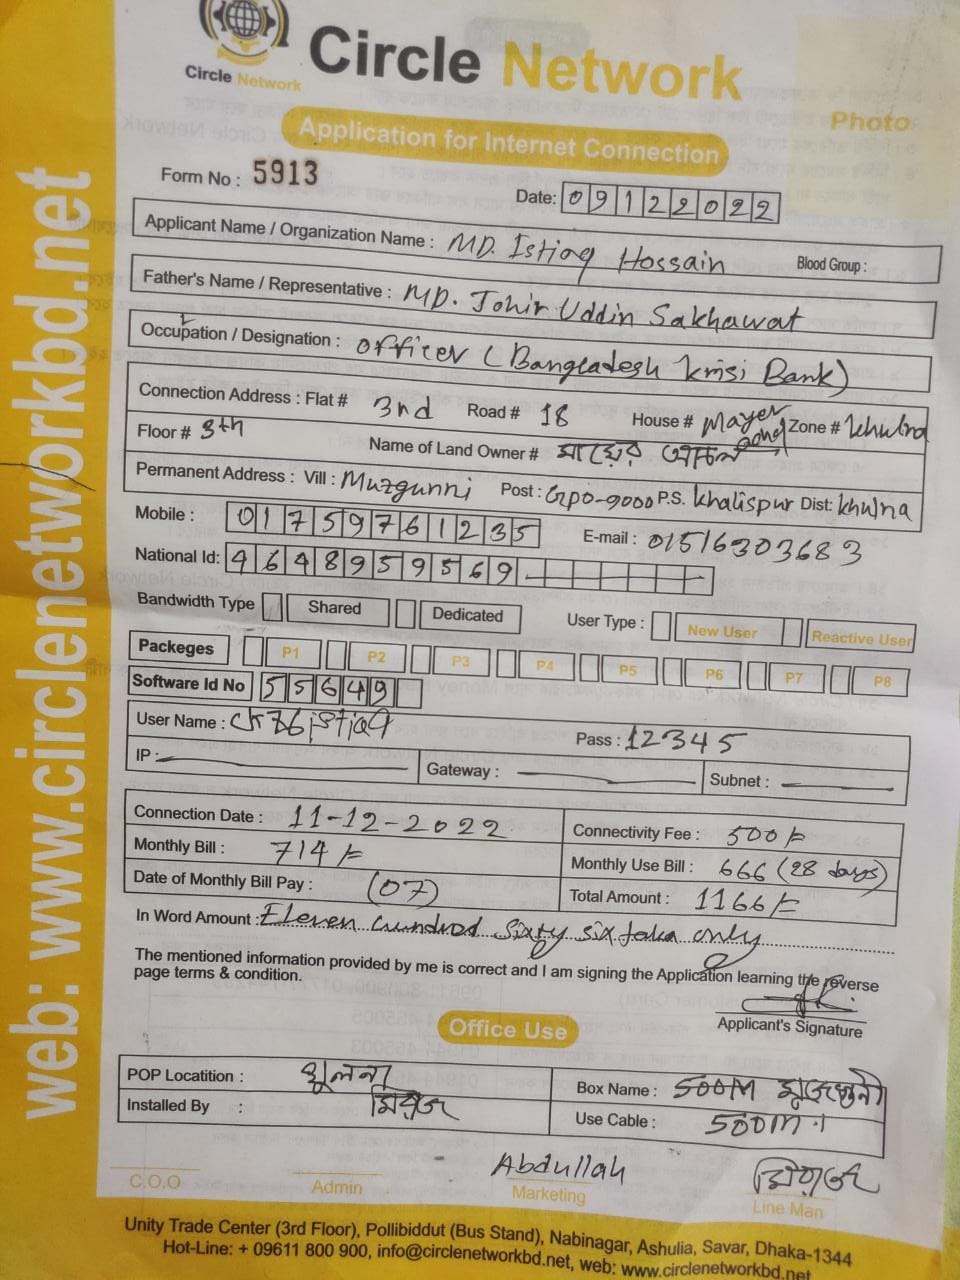 Circle Network
Circle Network
Application for Internet Connection
Photo
Form No : 5913
Date: 09122022
Applicant Name / Organization Name : MD. Istiaq Hossain Blood Group :
Father's Name / Representative : MD. Johir Uddin Sakhawat
Occupation / Designation : officer (Bangladesh krisi Bank)
Connection Address : Flat # 3rd Road # 18 House # Mayer Zone # khulna
Floor # 3th Name of Land Owner # মায়ের
Permanent Address : Vill : Muzgunni Post : Gpo-9000 P.S. khalispur Dist: khulna
Mobile : 01759761235 E-mail : 01516303683
National Id: 4648959569
Bandwidth Type Shared Dedicated User Type : New User Reactive User
Packeges P1 P2 P3 P4 P5 P6 P7 P8
Software Id No 55649
User Name : Pass : 12345
IP : Gateway : Subnet :
Connection Date : 11-12-2022 Connectivity Fee : 500/=
Monthly Bill : 714/= Monthly Use Bill : 666 (28 days)
Date of Monthly Bill Pay : (07) Total Amount : 1166/=
In Word Amount : Eleven hundred sixty six taka only
The mentioned information provided by me is correct and I am signing the Application learning the reverse
page terms & condition.
Applicant's Signature
Office Use
POP Locatition : খুলনা Box Name : 500M মুজগুন্নী
Installed By : মিরাজ Use Cable : 500M
C.O.O Admin Abdullah Marketing মিরাজ Line Man
Unity Trade Center (3rd Floor), Pollibiddut (Bus Stand), Nabinagar, Ashulia, Savar, Dhaka-1344
Hot-Line: + 09611 800 900, info@circlenetworkbd.net, web: www.circlenetworkbd.net
web: www.circlenetworkbd.net